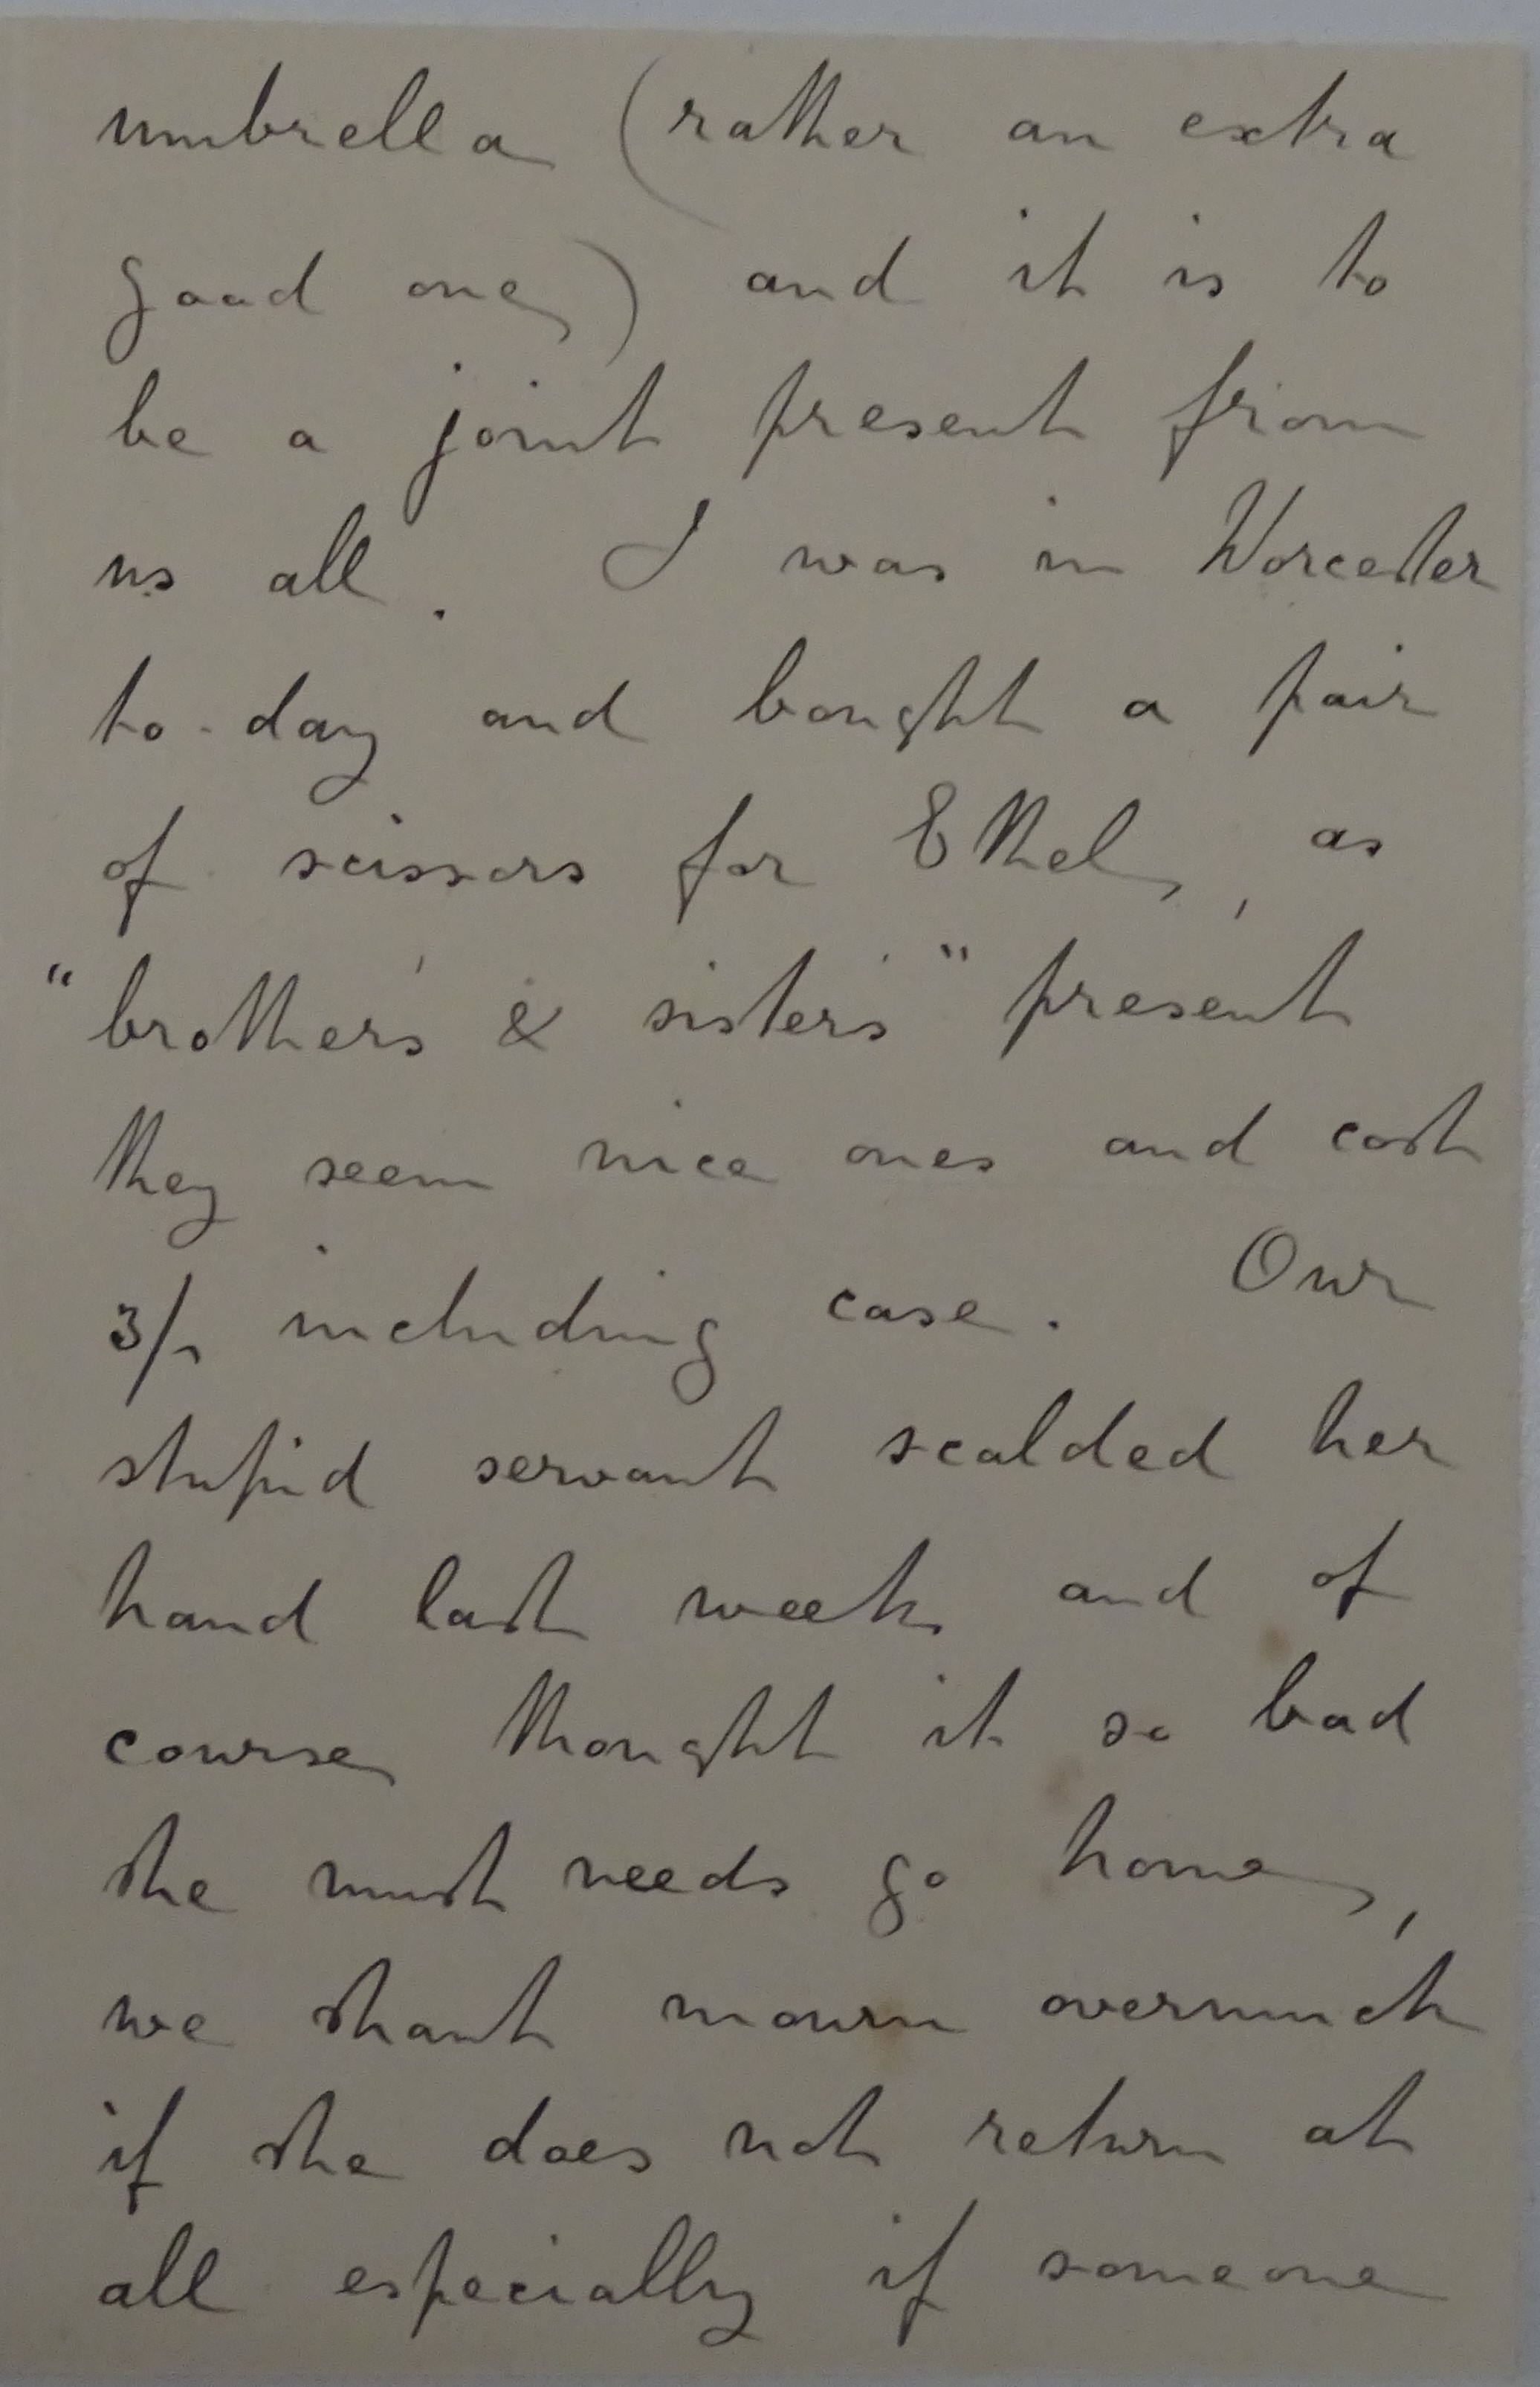 umbrella (rather an extra
good one) and it is to
be a joint present from
us all. I was in Worcester
to-day and bought a pair
of scissors for Ethel, as
"brother's & sister's" present
they seem nice ones and cost
3/- including case. Our
stupid servant scalded her
hand last week and of
course thought it so bad
she must needs go home,
we shant mourn overmuch
if she does not return at
all especially if someone